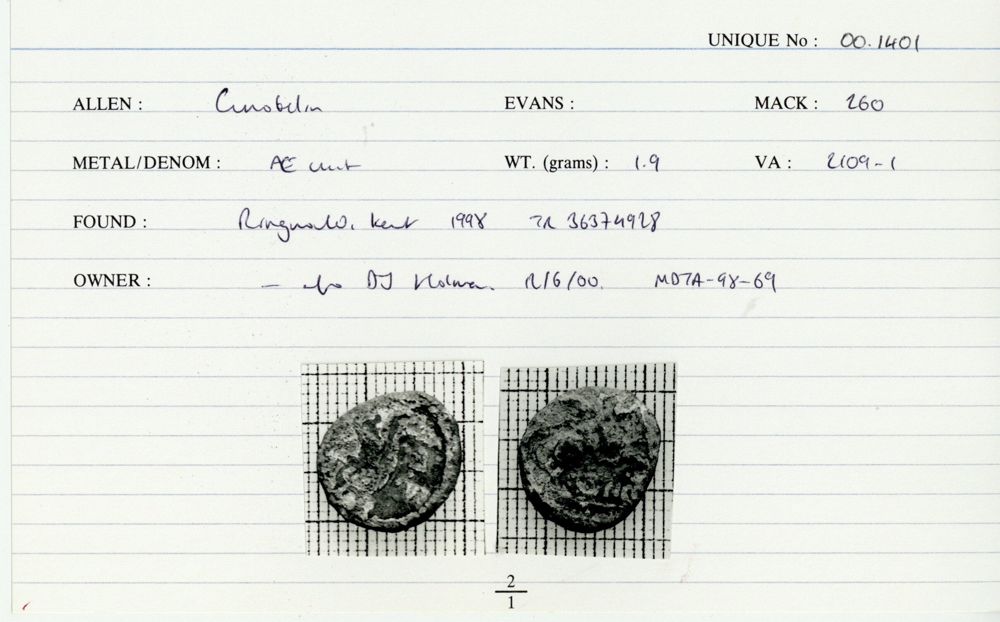 UNIQUE No : 00.1401
ALLEN : Cunobelin EVANS : MACK : 260
METAL/DENOM : Æ unit WT. (grams) : 1.9 VA : 2109-1
FOUND : Ringwould, Kent 1998 TR 36374928
OWNER : — info DJ Holman. /6/00. MDTA-98-69
2
1